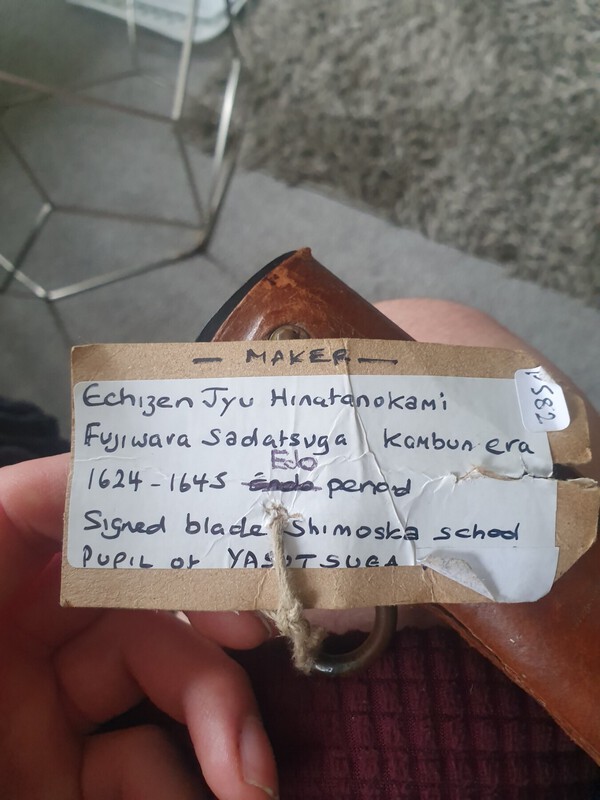 — MAKER —
Echizen Jyu Hinatanokami
Fujiwara Sadatsuga Kambun era
Edo
1624-1645 period
Signed blade Shimoska school
PUPIL of YASUTSUGA
582